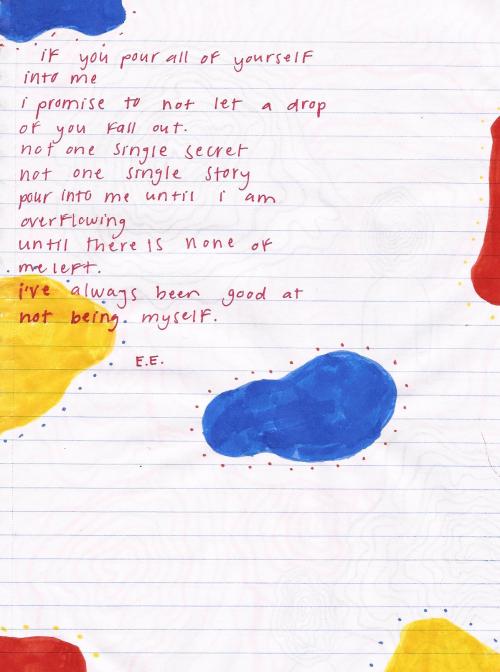 if you pour all of yourself
into me
i promise to not let a drop
of you fall out.
not one single secret
not one single story
pour into me until i am
overflowing
until there is none of
me left.
i've always been good at
not being myself.
E.E.